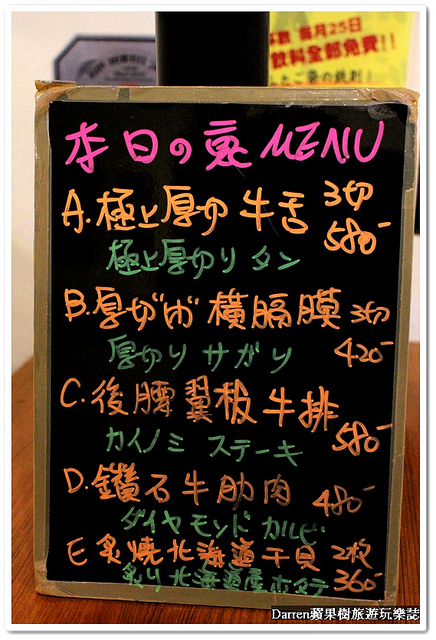 每月25日
飲料全部免費!!
本日の裏MENU
A.極上厚切牛舌 3切
580-
極上厚切りタン
B.厚がか横膈膜 3切
420-
厚切りサガリ
C.後腰翼板牛排
580-
カイノミ ステーキ
D.鑽石牛肋肉
480-
ダイヤモンドカルビ
E炙燒北海道干貝 2枚
炙り北海道産ホタテ 360-
Darren蘋果樹旅遊玩樂誌